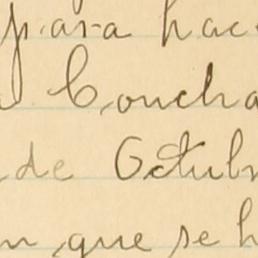 para hac
Concha
de Octubr
que se h